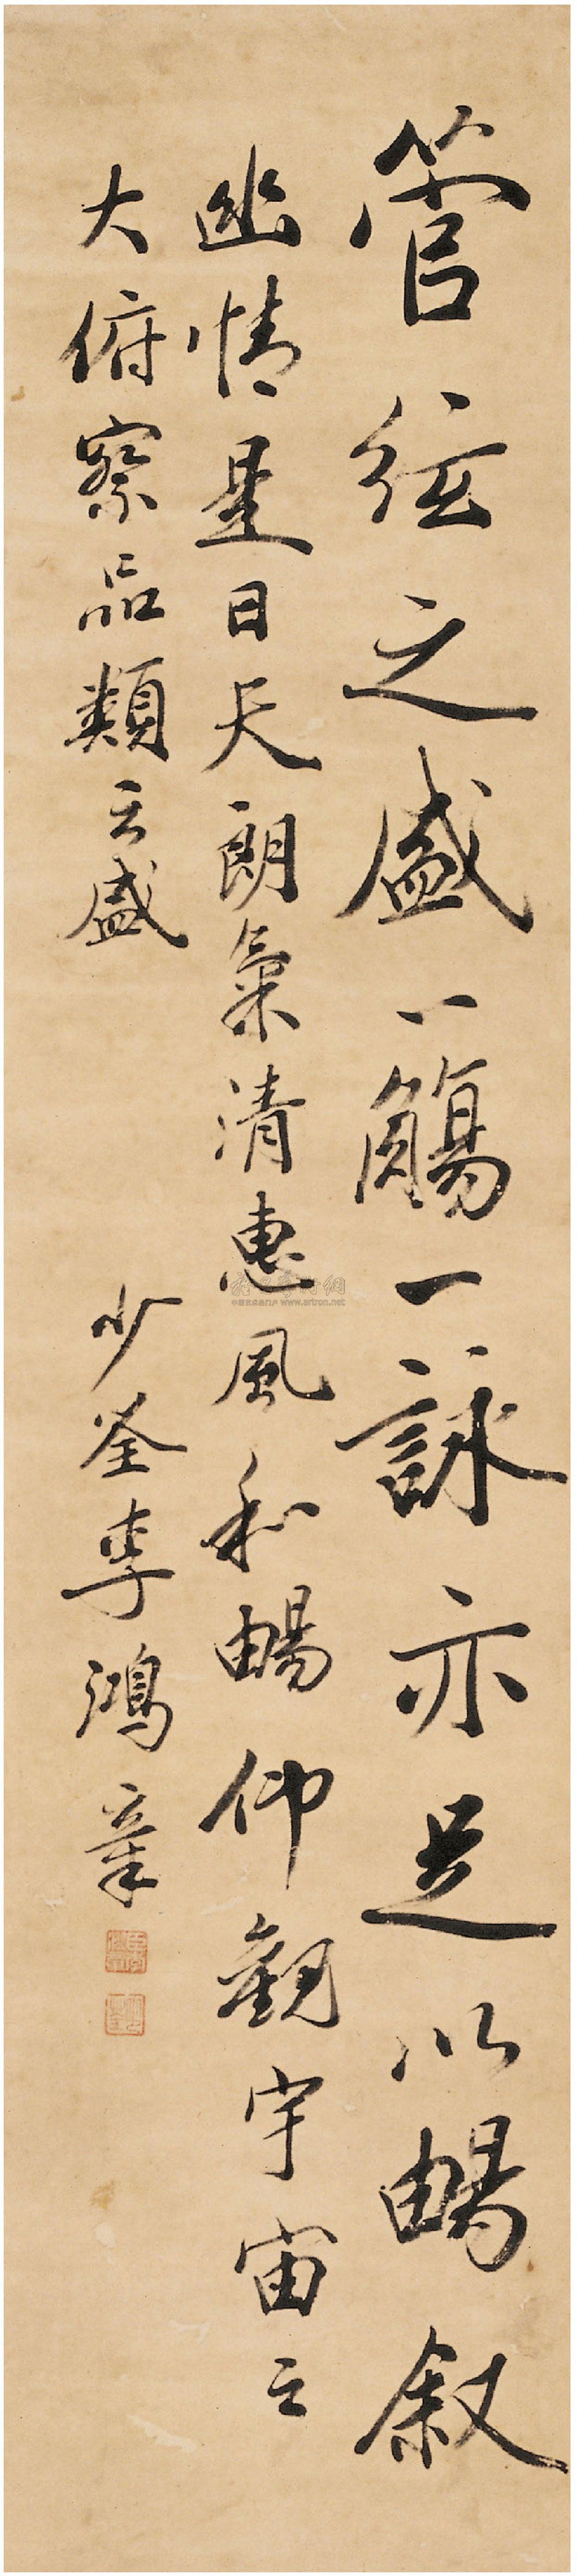 管弦之盛一觴一詠亦足以暢叙
幽情是日天朗氣清惠風和暢仰觀宇宙之
大俯察品類之盛
少荃李鴻章
www.artron.net